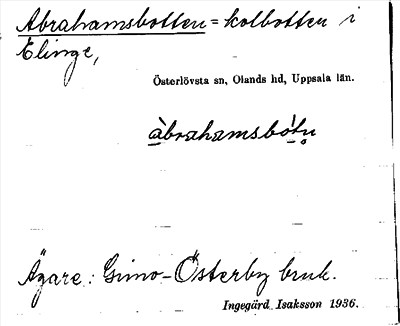 Abrahamsbotten = kolbotten i
Elinge,
Österlövsta sn, Olands hd, Uppsala län.
àbrahamsbòtn̥
Ägare: Gimo-Österby bruk.
Ingegärd Isaksson 1936.